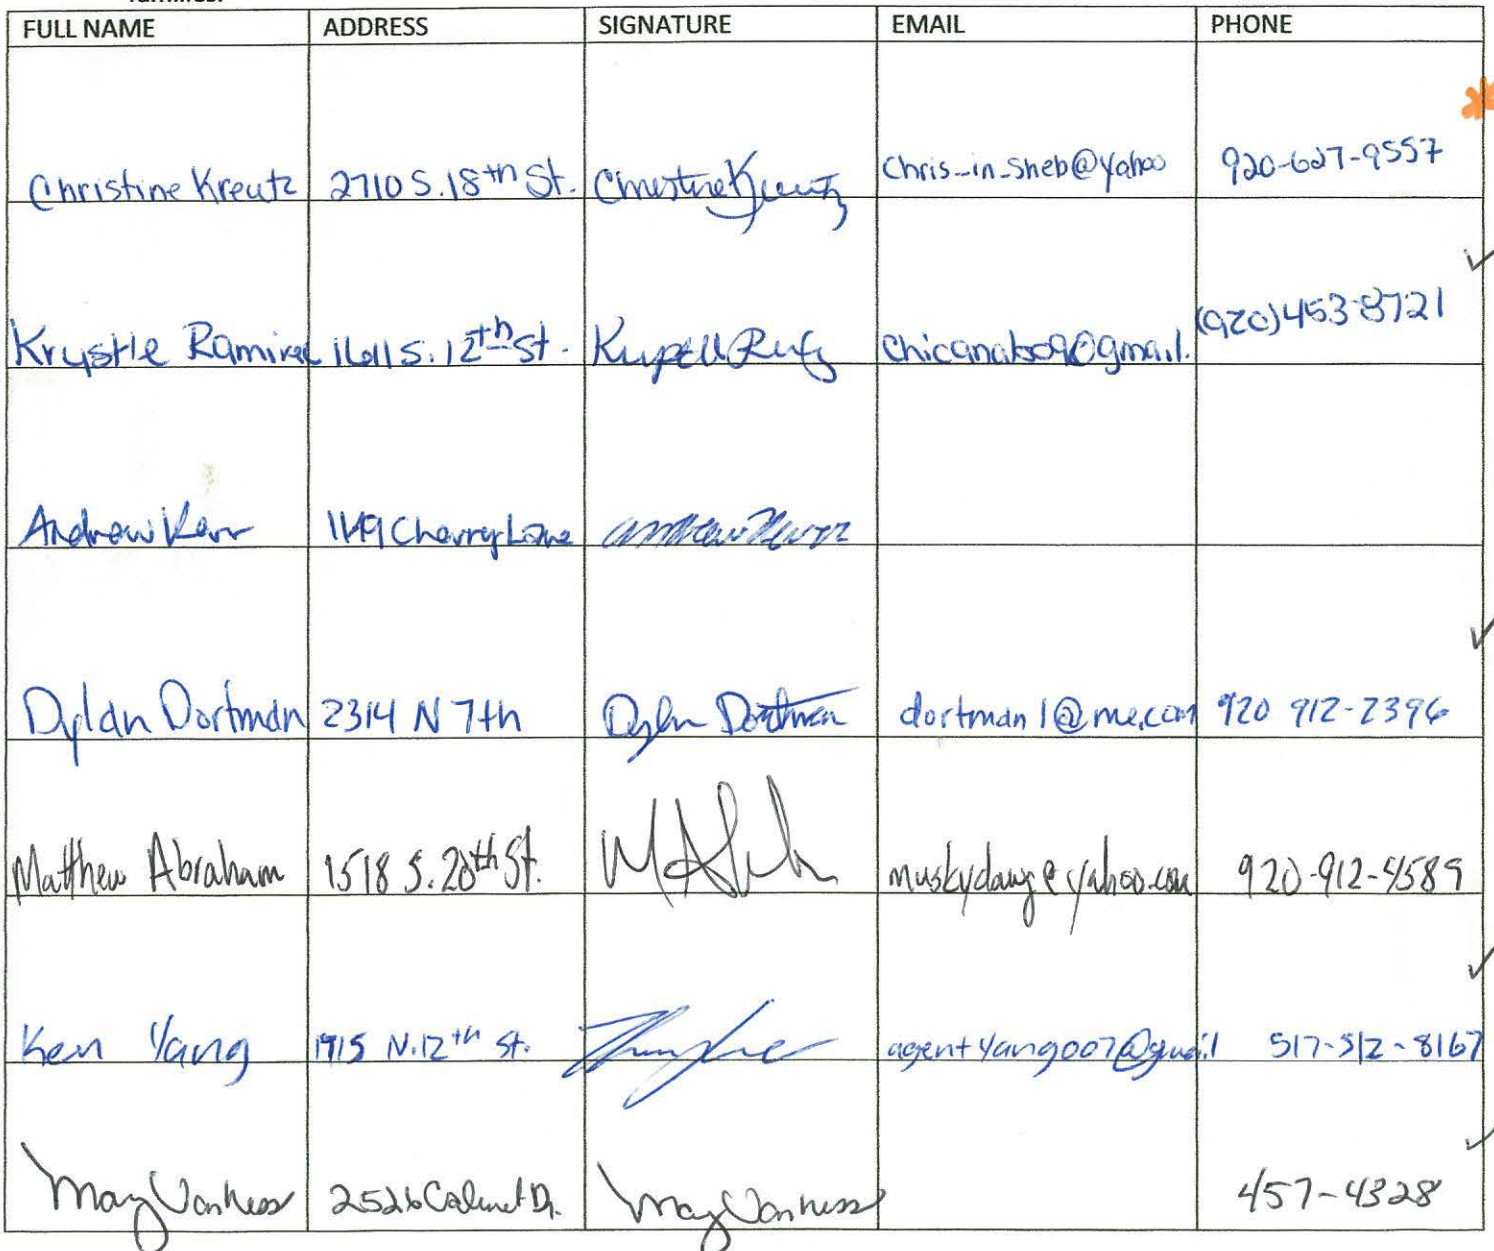 FULL NAME ADDRESS SIGNATURE EMAIL PHONE
Christine Kreutz 2710 S. 18th St. Christine Kreutz Chris_in_Sheb@yahoo 920-627-9557
Krystle Ramirez 1611 S. 12th St. (920) 453-8721
Andrew Kerr 1149 Cherry Lane
Dylan Dortman 2314 N 7th Dylan Dortman dortman1@me.com 920 912-2396
Matthew Abraham 1518 S. 20th St. muskydawg@yahoo.com 920-912-4589
Ken Yang 1915 N. 12th St. agentyang007@gmail 517-512-8167
May VanNess 2526 Calumet Dr. May VanNess 457-4328